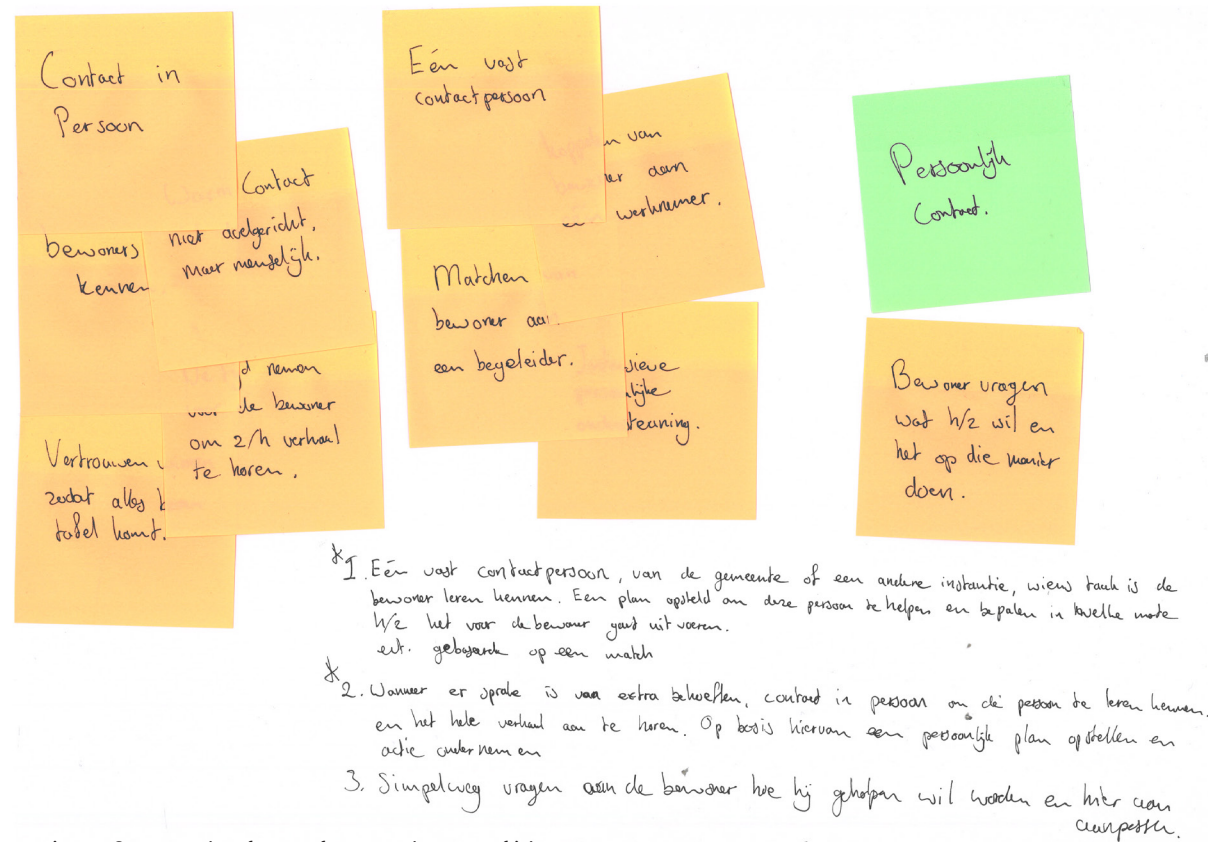 Contact in
Persoon
bewoners
kennen
Contact
niet doelgericht,
maar menselijk.
nemen
de bewoner
om z/h verhaal
te horen.
Vertrouwen
zodat alles
tafel komt.
Eén vast
contactpersoon
van
aan
werknemer.
Matchen
bewoner aan
een begeleider.
Persoonlijk
Contact.
Bewoner vragen
wat h/z wil en
het op die manier
doen.
*1. Eén vast contactpersoon, van de gemeente of een andere instantie, wiens taak is de
bewoner leren kennen. Een plan opsteld om deze persoon te helpen en bepalen in welke mate
h/z het voor de bewoner gaat uitvoeren.
evt. gebaseerd op een match
*2. Wanneer er sprake is van extra behoeften, contact in persoon om de persoon te leren kennen,
en het hele verhaal aan te horen. Op basis hiervan een persoonlijk plan opstellen en
actie ondernemen
3. Simpelweg vragen aan de bewoner hoe hij geholpen wil worden en hier aan
aanpassen.